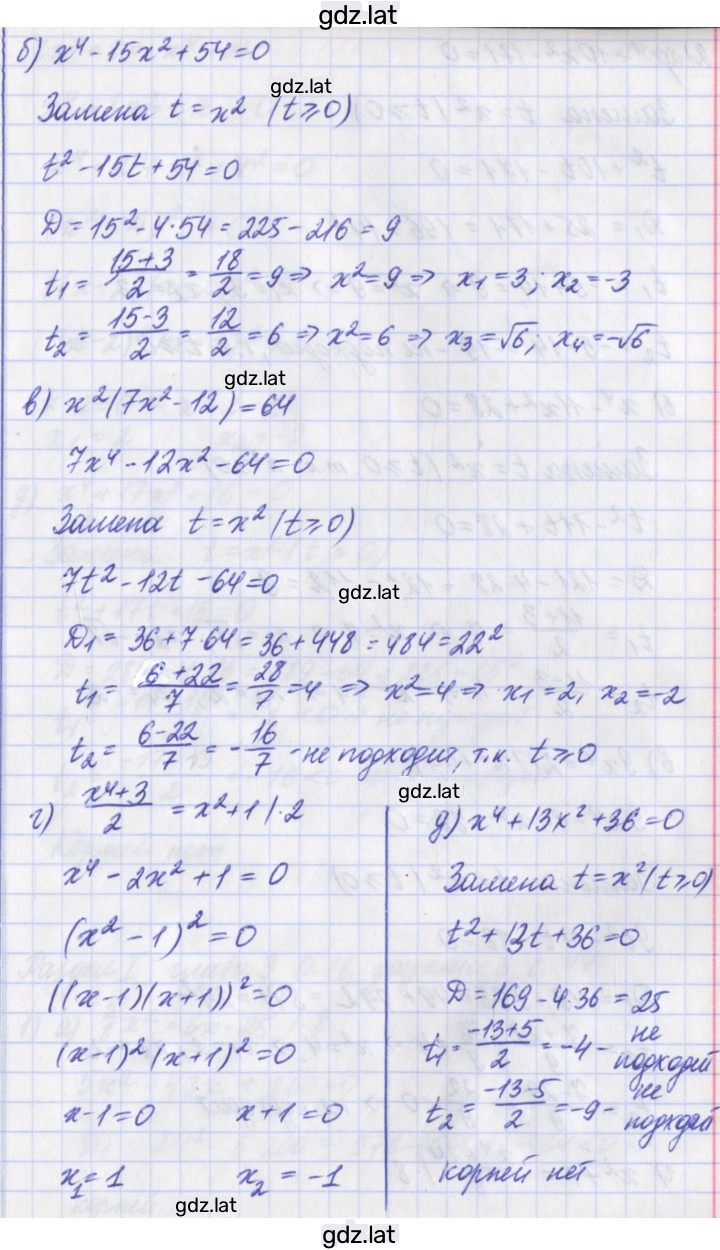 gdz.lat
б) x⁴ - 15x² + 54 = 0
gdz.lat
Замена t = x² (t ≥ 0)
t² - 15t + 54 = 0
D = 15² - 4·54 = 225 - 216 = 9
t₁ = (15+3)/2 = 18/2 = 9 ⇒ x² = 9 ⇒ x₁ = 3; x₂ = -3
t₂ = (15-3)/2 = 12/2 = 6 ⇒ x² = 6 ⇒ x₃ = √6, x₄ = -√6
gdz.lat
в) x²(7x² - 12) = 64
7x⁴ - 12x² - 64 = 0
Замена t = x² (t ≥ 0)
7t² - 12t - 64 = 0
gdz.lat
D₁ = 36 + 7·64 = 36 + 448 = 484 = 22²
t₁ = (6+22)/7 = 28/7 = 4 ⇒ x² = 4 ⇒ x₁ = 2, x₂ = -2
t₂ = (6-22)/7 = -16/7 - не подходит, т.к. t ≥ 0
gdz.lat
г) (x⁴+3)/2 = x² + 1 | · 2
x⁴ - 2x² + 1 = 0
(x² - 1)² = 0
((x-1)(x+1))² = 0
(x-1)²(x+1)² = 0
x - 1 = 0 x + 1 = 0
x₁ = 1 x₂ = -1
д) x⁴ + 13x² + 36 = 0
Замена t = x² (t ≥ 0)
t² + 13t + 36 = 0
D = 169 - 4·36 = 25
t₁ = (-13+5)/2 = -4 - не подходит
t₂ = (-13-5)/2 = -9 - не подходит
корней нет
gdz.lat
gdz.lat